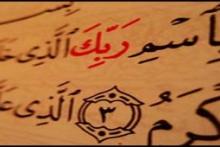 بِٱسْمِ رَبِّكَ ٱلَّذِى خَلَ
كْرَمُ ٣ ٱلَّذِى عَلَّ